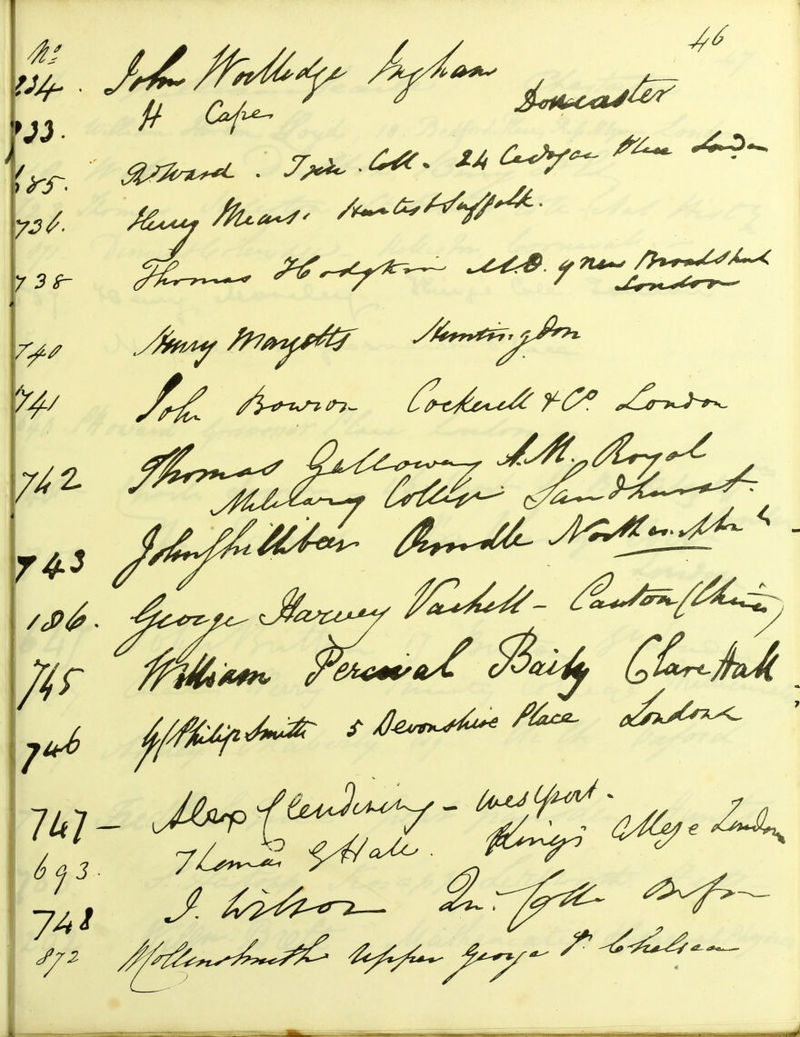 46
No
234. John Woolledge Ingham
733. H Capes Doncaster
685. R Ward. Trin. Coll. 24 Cadogan Place London
736. Henry Mears, Suffolk.
738 Thomas Hodgkin M.D. 9 New Broad Street
London
740 Henry Margetts Huntingdon
741 John Bowron Cockerell & Co. London
742 Thomas Galloway A.M. Royal
Military College Sandhurst.
743 John Shillibeer Oundle
186. George Harvey Vachell - Canton (China)
745 William Percival Baily Clare Hall
746 Philip Smith 5 Devonshire Place London
747 - Alex Clendining - Westport.
693. Thomas G Hall. King's College London
748 J. Wilson Qu. Coll. Oxfor
872 Upper George St. Chelsea